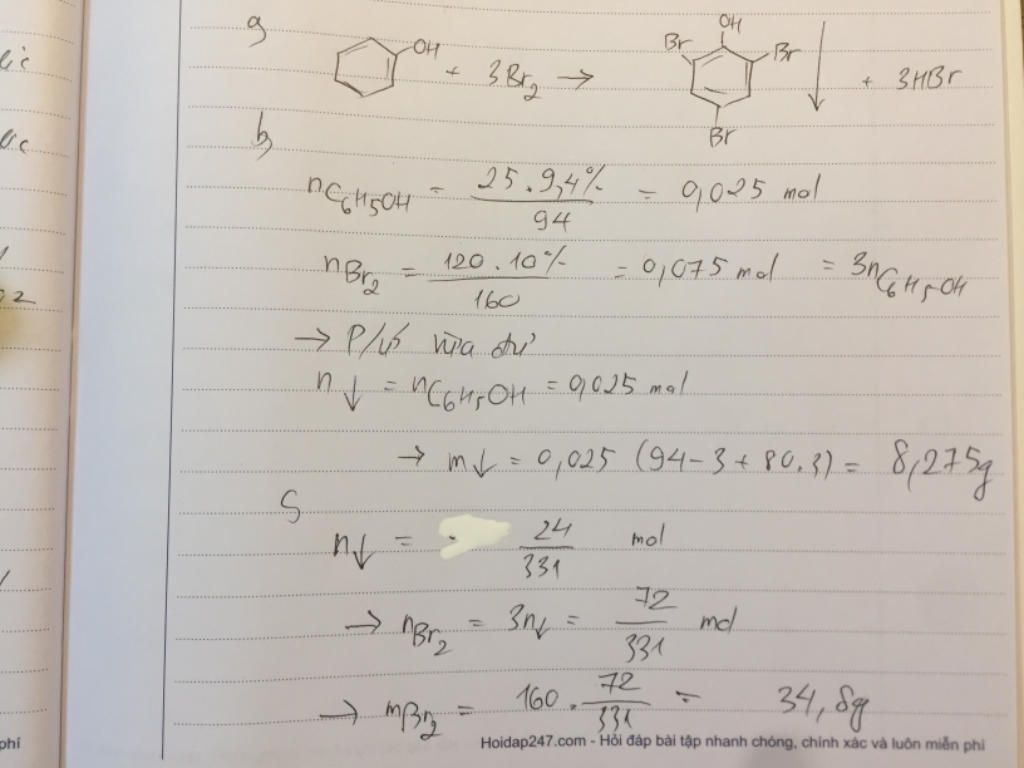 a)
OH + 3Br2 → OH Br Br Br ↓ + 3HBr
b)
nC6H5OH = 25 . 9,4% / 94 = 0,025 mol
nBr2 = 120 . 10% / 160 = 0,075 mol = 3nC6H5OH
→ P/ứ vừa đủ
n↓ = nC6H5OH = 0,025 mol
→ m↓ = 0,025 (94-3+80.3) = 8,275g
n↓ = 24 / 331 mol
→ nBr2 = 3n↓ = 72 / 331 mol
→ mBr2 = 160 . 72 / 331 = 34,8g
phí
Hoidap247.com - Hỏi đáp bài tập nhanh chóng, chính xác và luôn miễn phí